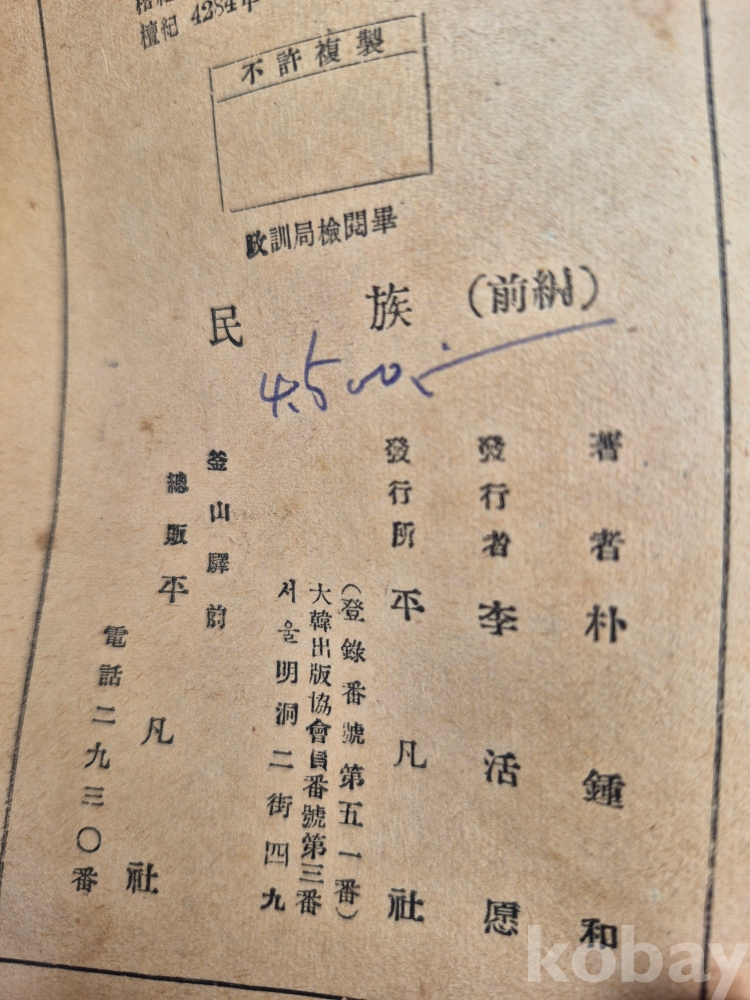 檀紀 4284年
不許複製
政訓局檢閱畢
民族 (前編)
4.500
著者 朴鍾和
發行者 李活愿
發行所 平凡社
(登錄番號第五一番)
大韓出版協會員番號第三番
서울明洞二街四九
釜山驛前
總販 平凡社
電話二九三〇番
kobay